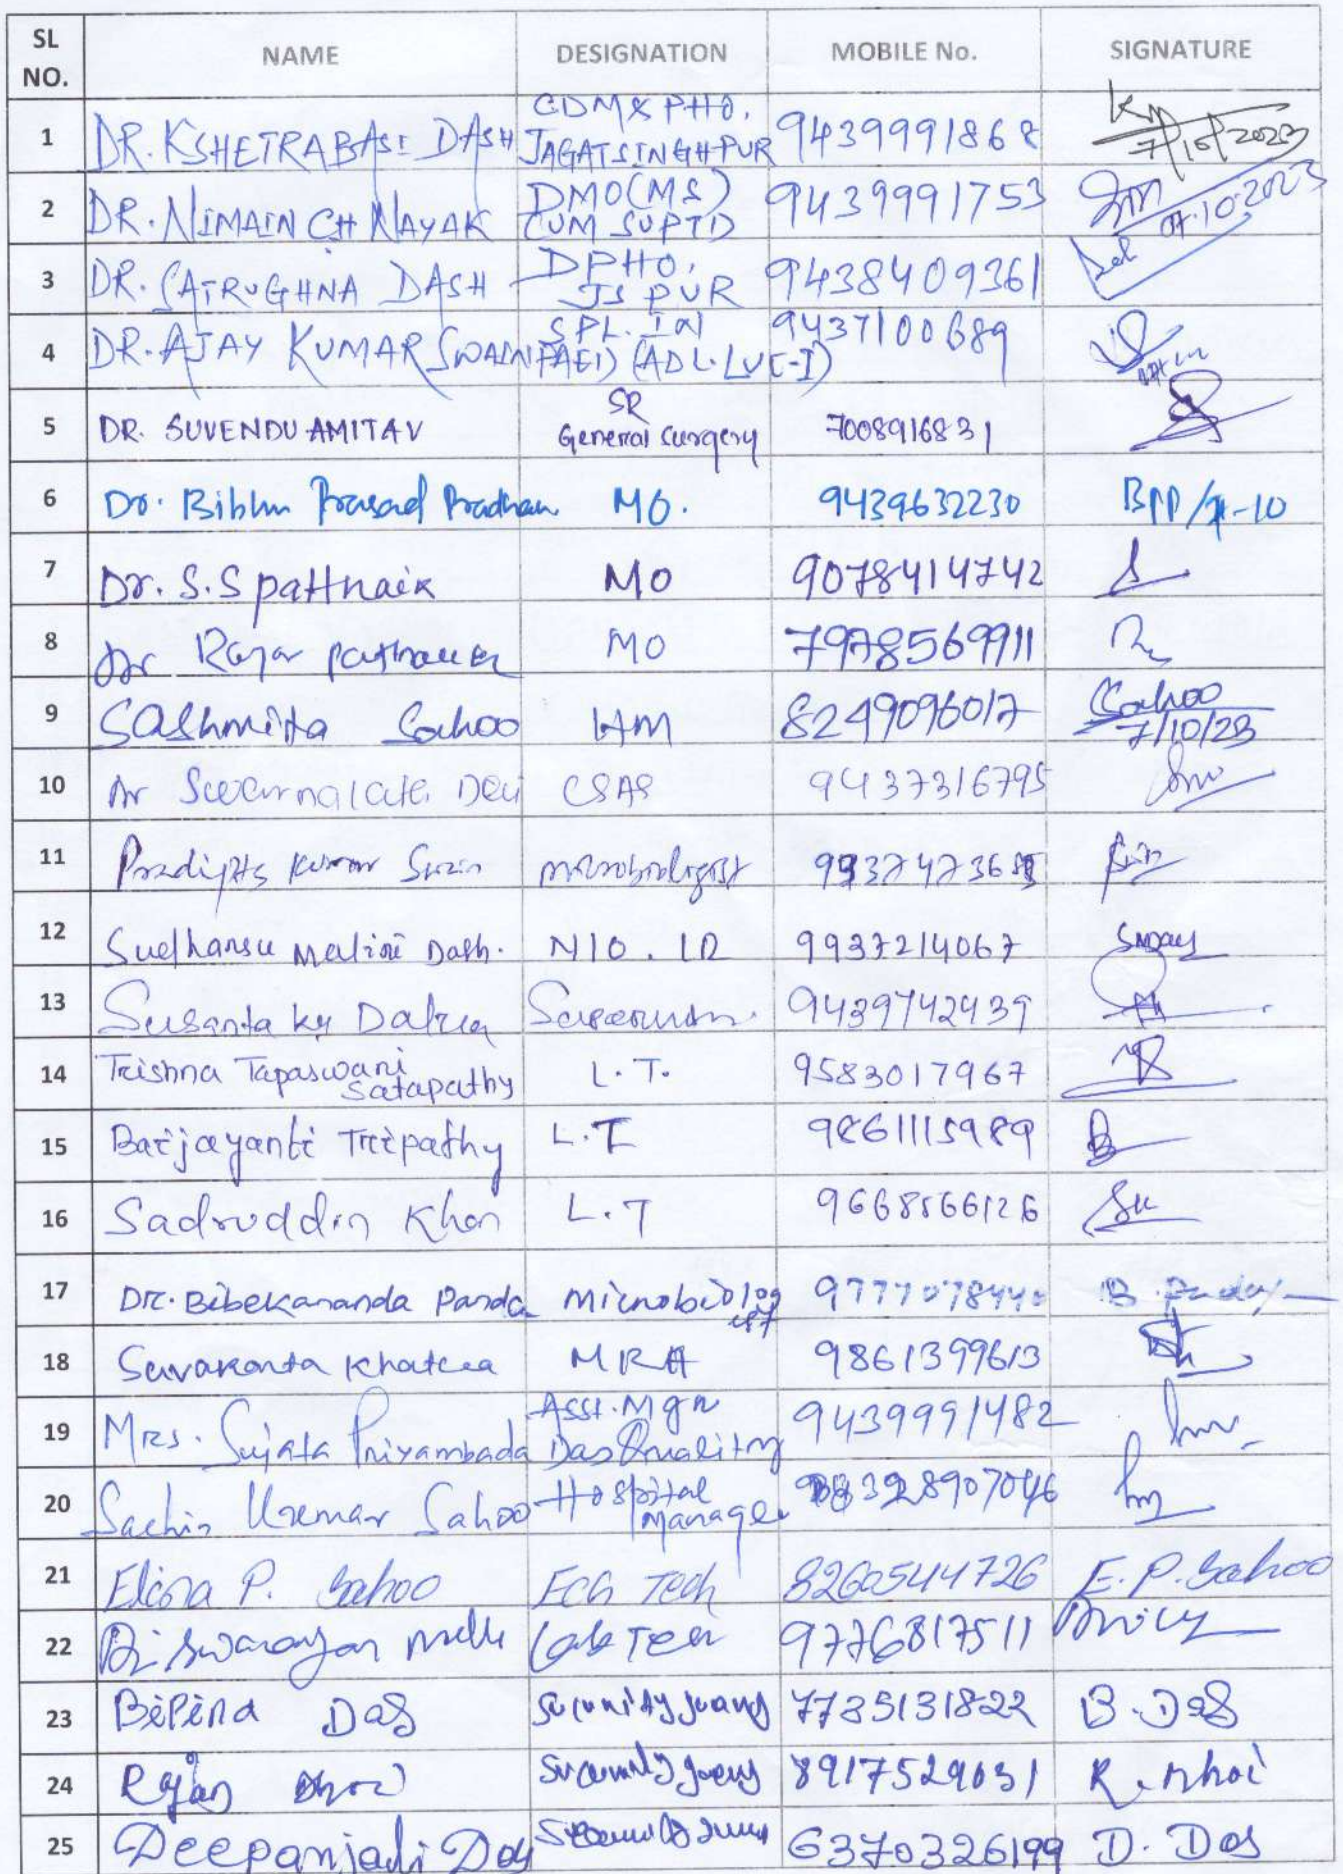 SL NO. NAME DESIGNATION MOBILE No. SIGNATURE
1 DR. KSHETRABASI DASH CDM & PHO, JAGATSINGHPUR 9439991868 7/10/2023
2 DR. NIMAIN CH NAYAK DMO(MS) CUM SUPTD 9439991753 07.10.2023
3 DR. SATRUGHNA DASH DPHO, JSPUR 9438409361
4 DR. AJAY KUMAR SWAIN SPL. (ADL. 9437100689
5 DR. SUVENDU AMITAV SR General surgery 7008916831
6 Dr. Bibhu Prasad Pradhan MO. 9439632230 BPP/7-10
7 Dr. S.S pattnaik MO 9078414742
8 Dr MO 7978569911
9 Sashmita Sahoo HM 8249096017 Sahoo 7/10/23
10 Dr Swarnalata Devi 9437316795
11 Kumar microbiologist
12 Sudhansu Malini Dash. N/O. 9937214067
13 Susanta Ku 9439742439
14 Trishna Tapaswani Satapathy L.T. 9583017967
15 Baijayanti Tripathy L.T 9861115989
16 Sadruddin Khan L.T
17 Dr. Bibekananda Panda Microbiologist 9777078440
18 Suvakanta Khatua MRA 9861399613
19 Mrs. Sujata Priyambada Das Asst. Mgr Quality 9439991482
20 Sachin Kumar Sahoo Hospital Manager
21 Elina P. Sahoo ECG Tech 8260544726 E. P. Sahoo
22 Lab Tech 9776817511
23 Bipina Das 7735131822 B. Das
24 Rajan Bhoi 8917529031 R. Bhoi
25 Deepanjali Das 6370326199 D. Das